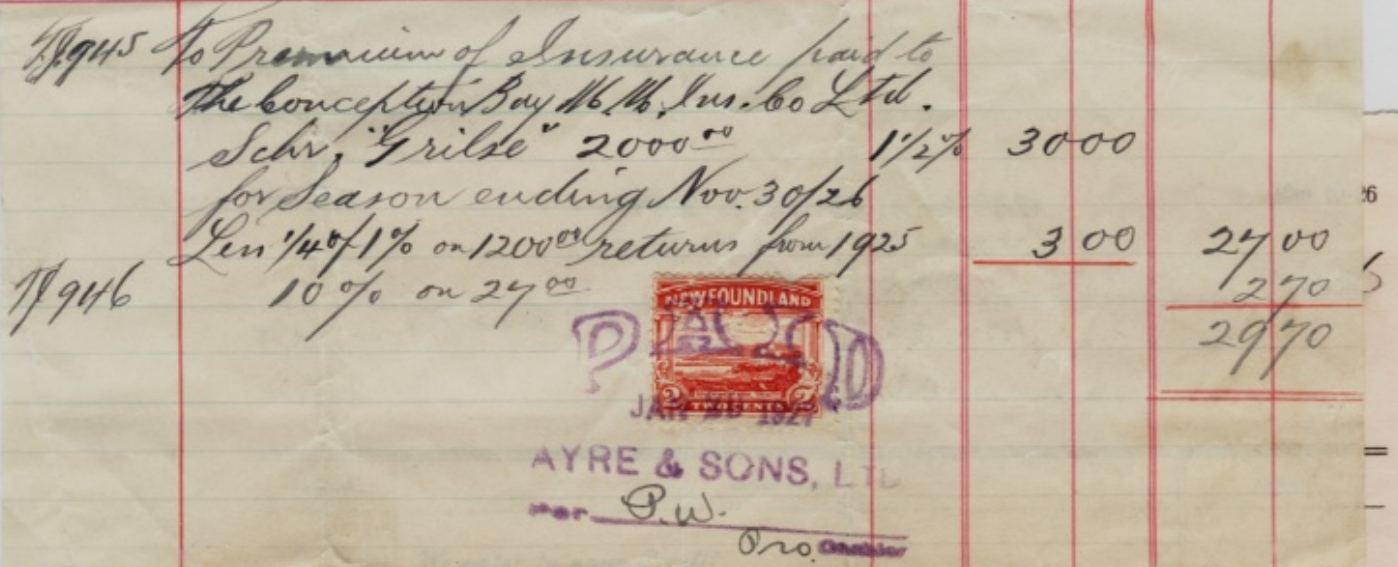 945 To Premium of Insurance paid to
The Conception Bay M. M. Ins. Co Ltd.
Schr. "Grilse" 2000 00 1 1/2 % 30 00
for Season ending Nov. 30/26
Less 1/4 of 1% on 1200 00 returns from 1925 3 00 27 00
946 10 % on 27 00 2 70
29 70
NEWFOUNDLAND
PAID
2 TWO CENTS 2
JAN 1927
AYRE & SONS, LTD
Per P.W.
Pro. Cashier
26